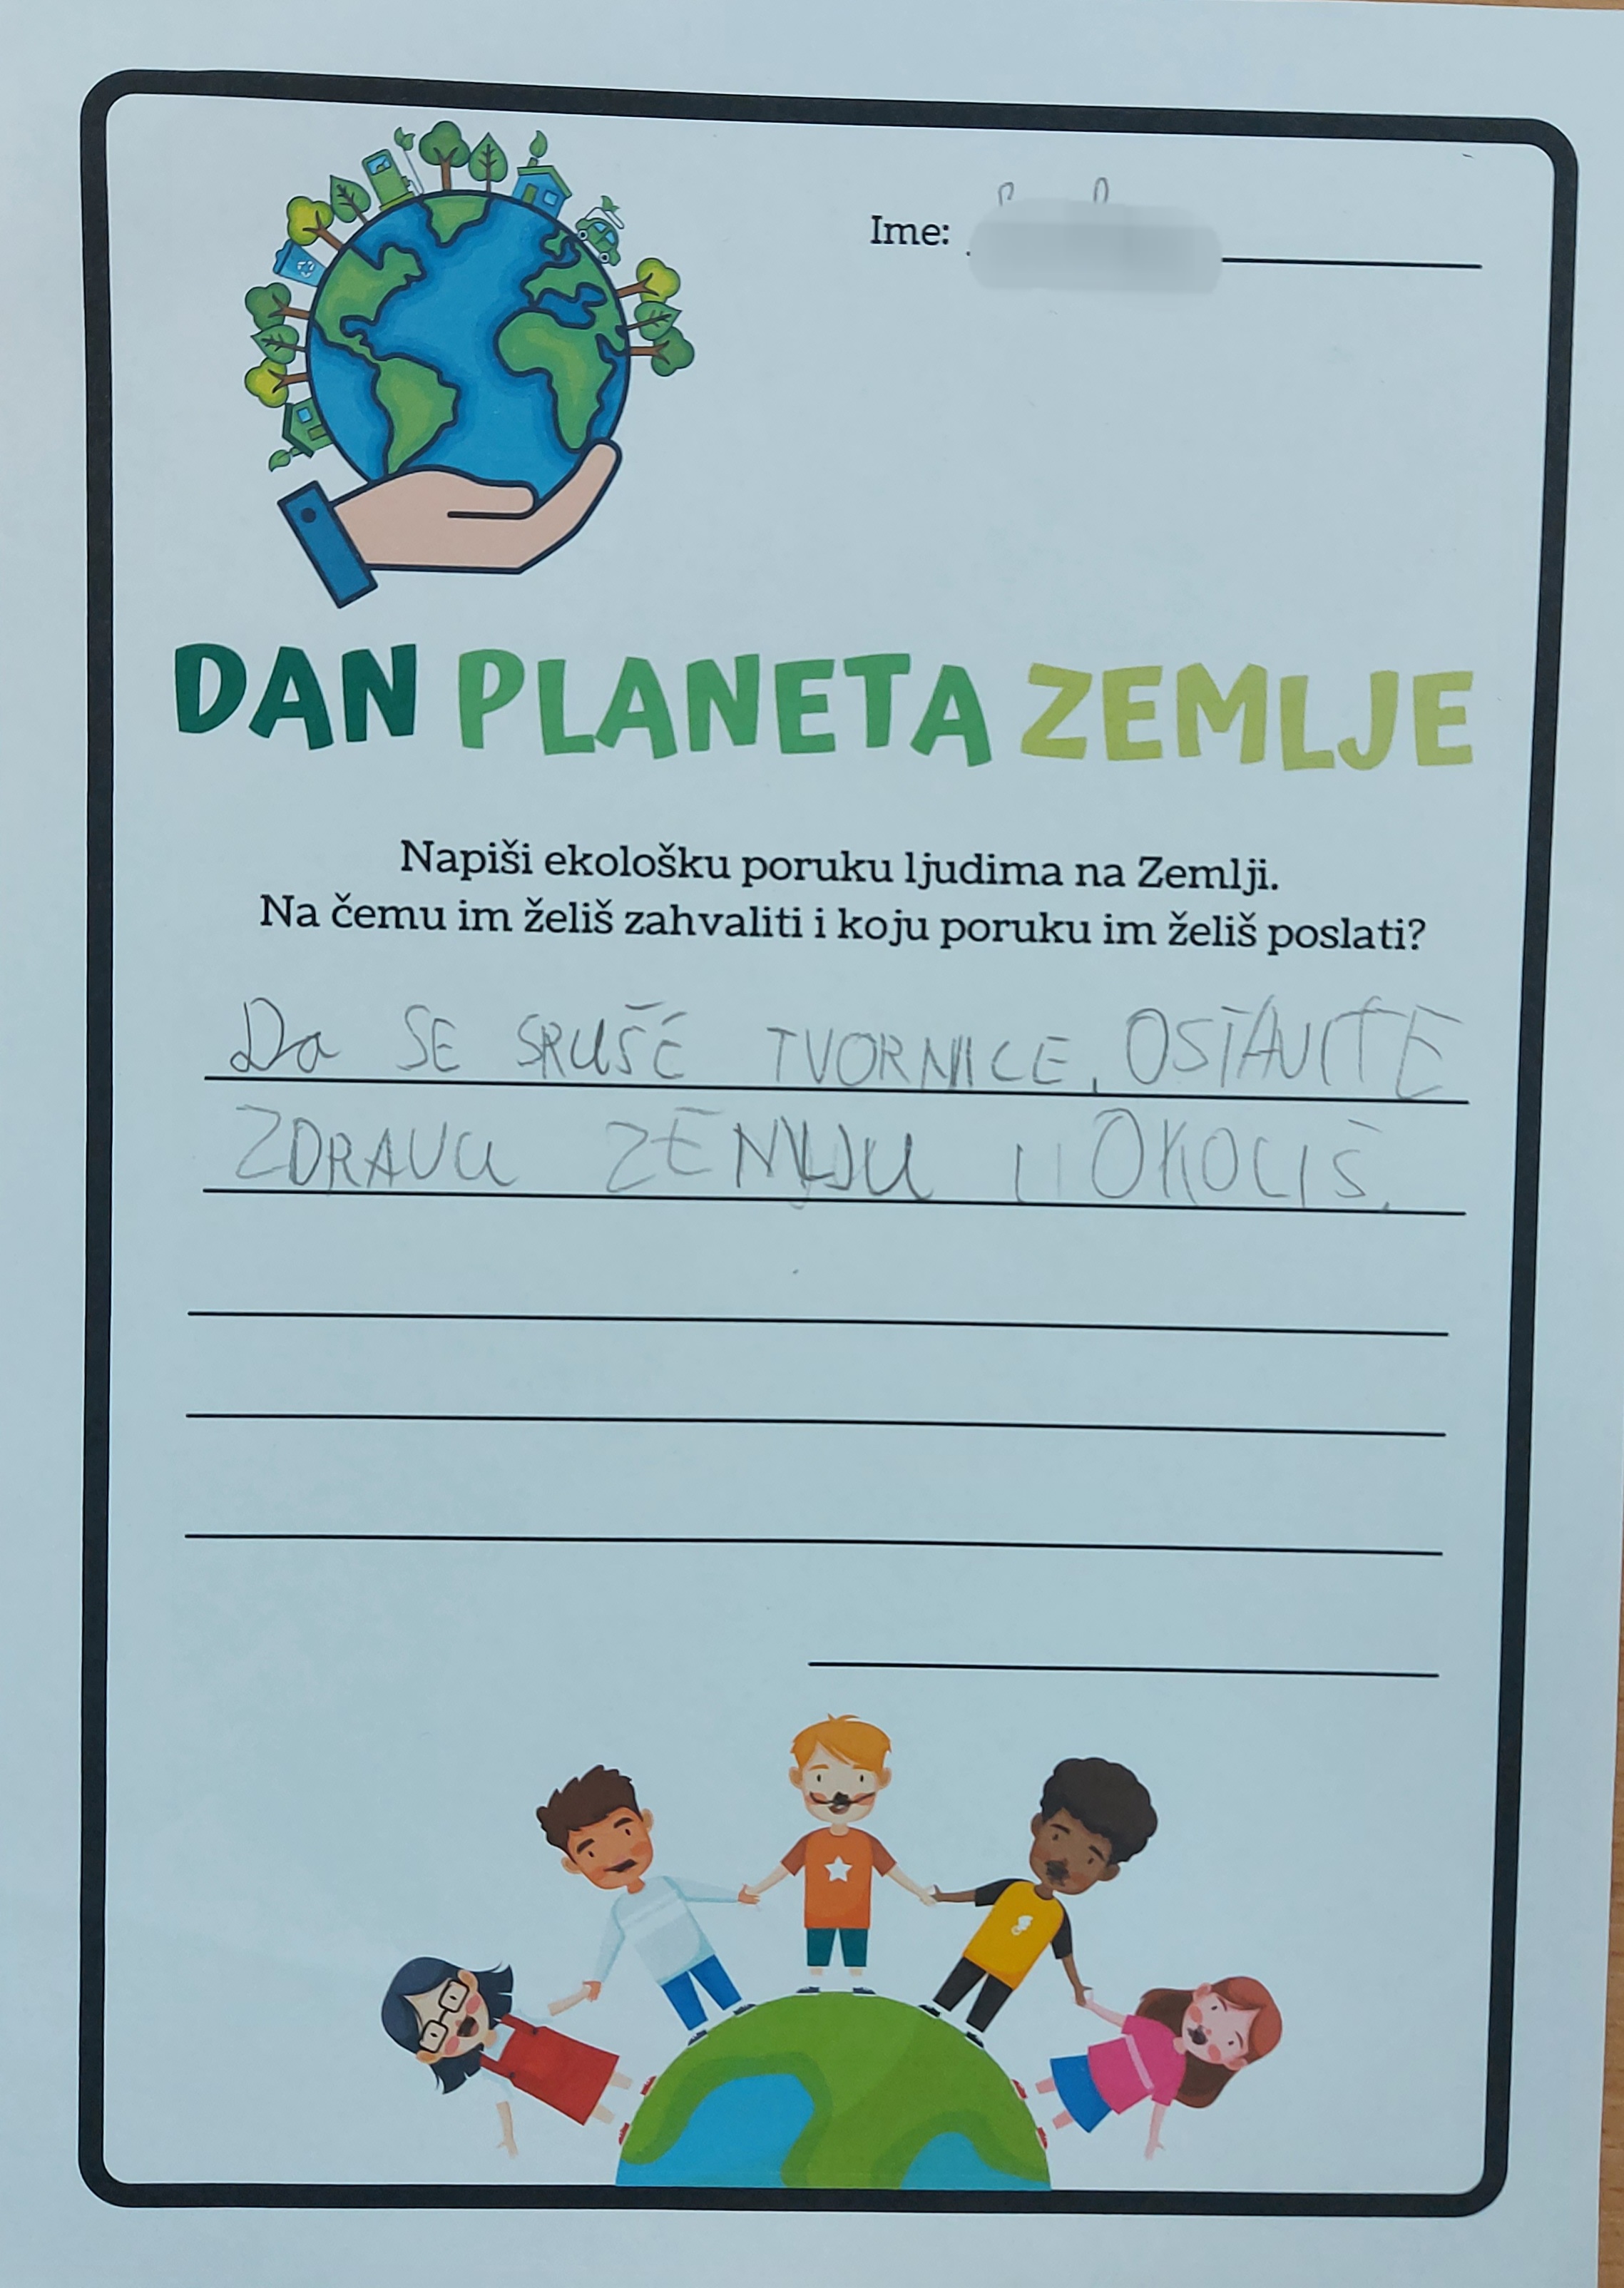 Ime:
DAN PLANETA ZEMLJE
Napiši ekološku poruku ljudima na Zemlji.
Na čemu im želiš zahvaliti i koju poruku im želiš poslati?
Da SE SRUŠE TVORNICE, OSTAVITE
ZDRAVU ZEMLJU I OKOLIŠ.